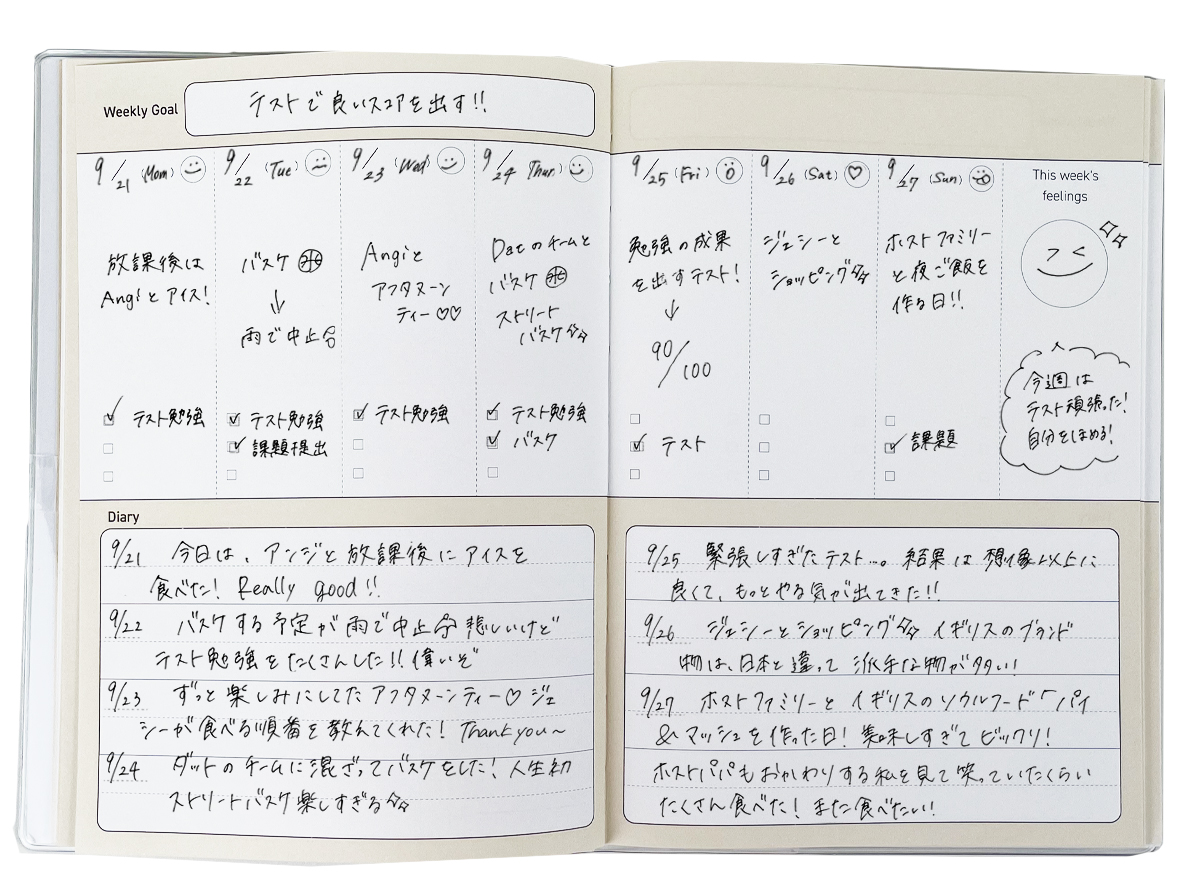 Weekly Goal
テストで良いスコアを出す!!
9/21 (Mom)
放課後は
Angiとアイス!
テスト勉強
9/22 (Tue)
バスケ
↓
雨で中止
テスト勉強
課題提出
9/23 (Wed)
Angiと
アフタヌーン
ティー♡♡
テスト勉強
9/24 Thur)
Datのチームと
バスケ
ストリート
バスケ
テスト勉強
バスケ
9/25 (Fri)
勉強の成果
を出すテスト!
↓
90/100
テスト
9/26 (Sat)
ジェシーと
ショッピング
9/27 (Sun)
ホストファミリー
と夜ご飯を
作る日!!
課題
This week's
feelings
今週は
テスト頑張った!
自分をほめる!
Diary
9/21 今日は、アンジと放課後にアイスを
食べた! Really good!!
9/22 バスケする予定が雨で中止 悲しいけど
テスト勉強をたくさんした!! 偉いぞ
9/23 ずっと楽しみにしてたアフタヌーンティー♡ ジェ
シーが食べる順番を教えてくれた! Thank you~
9/24 ダットのチームに混ざってバスケをした! 人生初
ストリートバスケ楽しすぎる
9/25 緊張しすぎたテスト…。結果は想像以上に
良くて、もっとやる気が出てきた!!
9/26 ジェシーとショッピング イギリスのブランド
物は、日本と違って派手な物が多い!
9/27 ホストファミリーとイギリスのソウルフード「パイ
&マッシュを作った日! 美味しすぎてビックリ!
ホストパパもおかわりする私を見て笑っていたくらい
たくさん食べた! また食べたい!